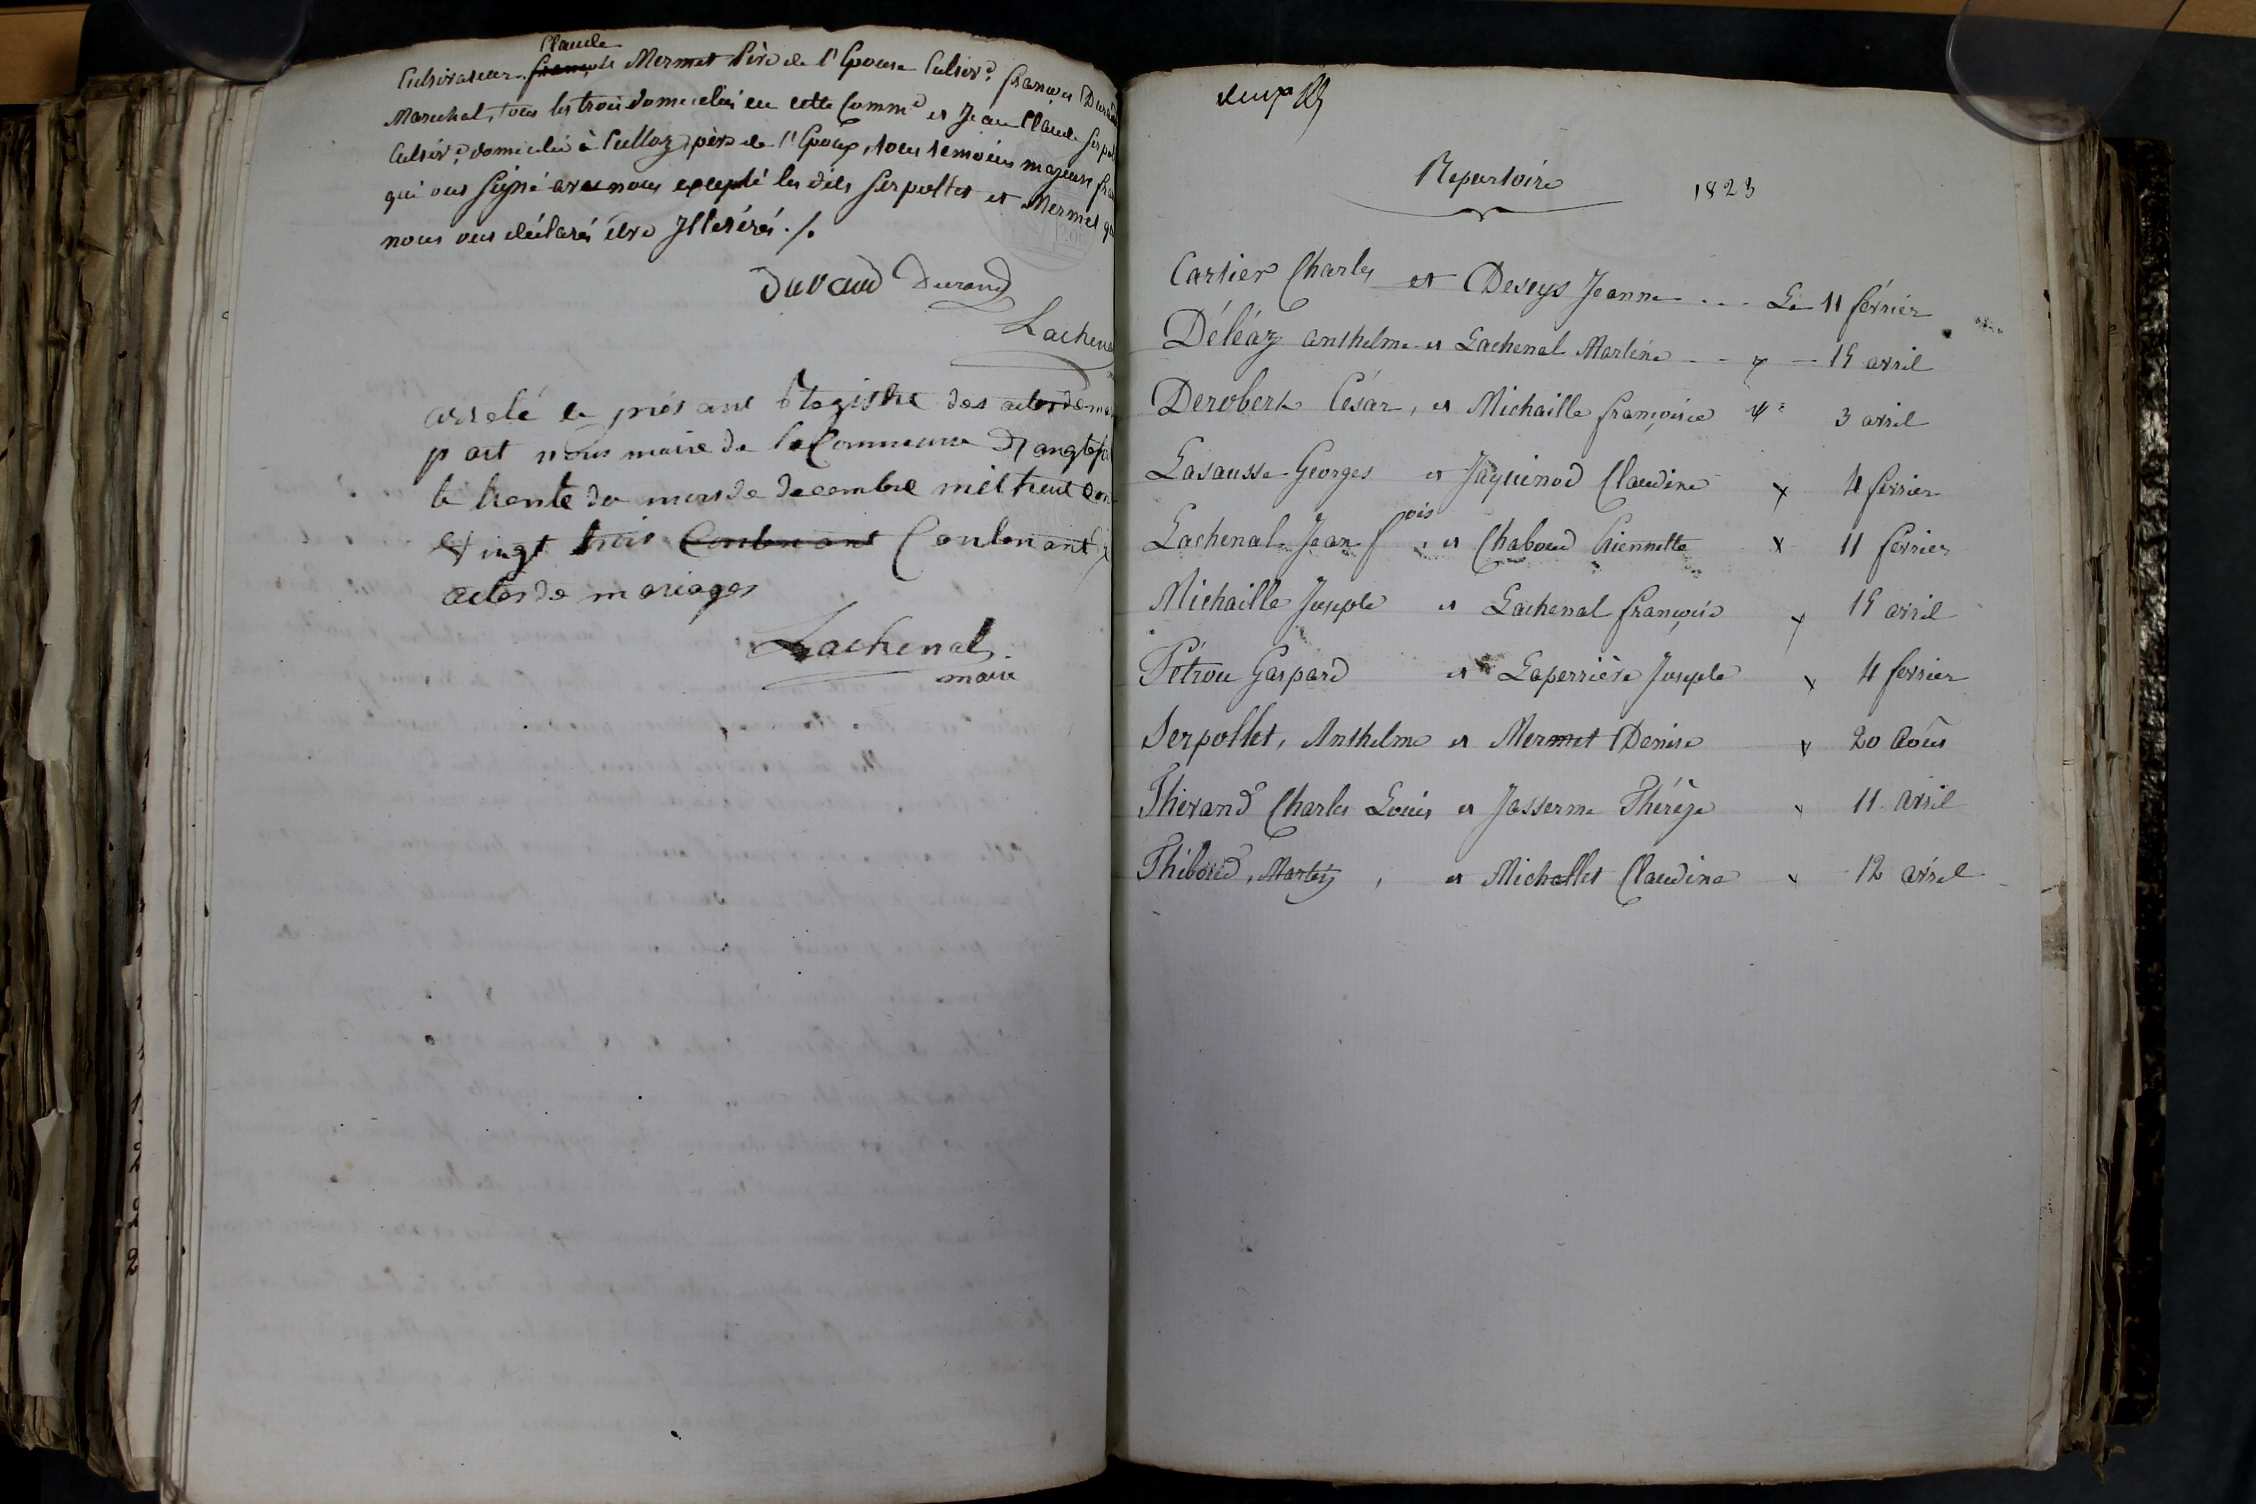 Claude
Cultivateur, françois Mermet Père de l'Epouse Cultivr. françois Durand
Marechal, tous les trois domiciliés en cette Comme et Jean Claude Serpol
Cultivr. domicilié à Culloz père de l'Epoux, tous temoins majeurs
qui ont signé avec nous excepté les dits Serpollet et Mermet qu
nous ont déclarés être Illetérés ./.
Durand Durand
Lachena
arreté le présant Registre des actes de ma
part nous maire de la Commune D'anglefo
le trente du mois de decembre mil huit cen
vingt trois Contenant Contenant
actes de mariages
Lachenal
maire
Repertoire 1823
Cartier Charles et Deseys Jeanne ... Le 11 février
Déléaz anthelme et Lachenal Martine - - " - 15 avril
Derobert César, et Michaille françoise " 3 avril
Lasausse Georges et Jaquinod Claudine " 4 fevrier
Lachenal Jean fois, et Chaboud Piennette " 11 fevrier
Michaille Joseph et Lachenal françoise " 15 avril
Pétrou Gaspard et Laperrière Joseph " 4 fevrier
Serpollet, Anthelme et Mermet Denise " 20 Août
Thevand Charles Louis et Josserme Thérèse " 11 avril
Thiboud, Martin, et Michallet Claudine " 12 avril